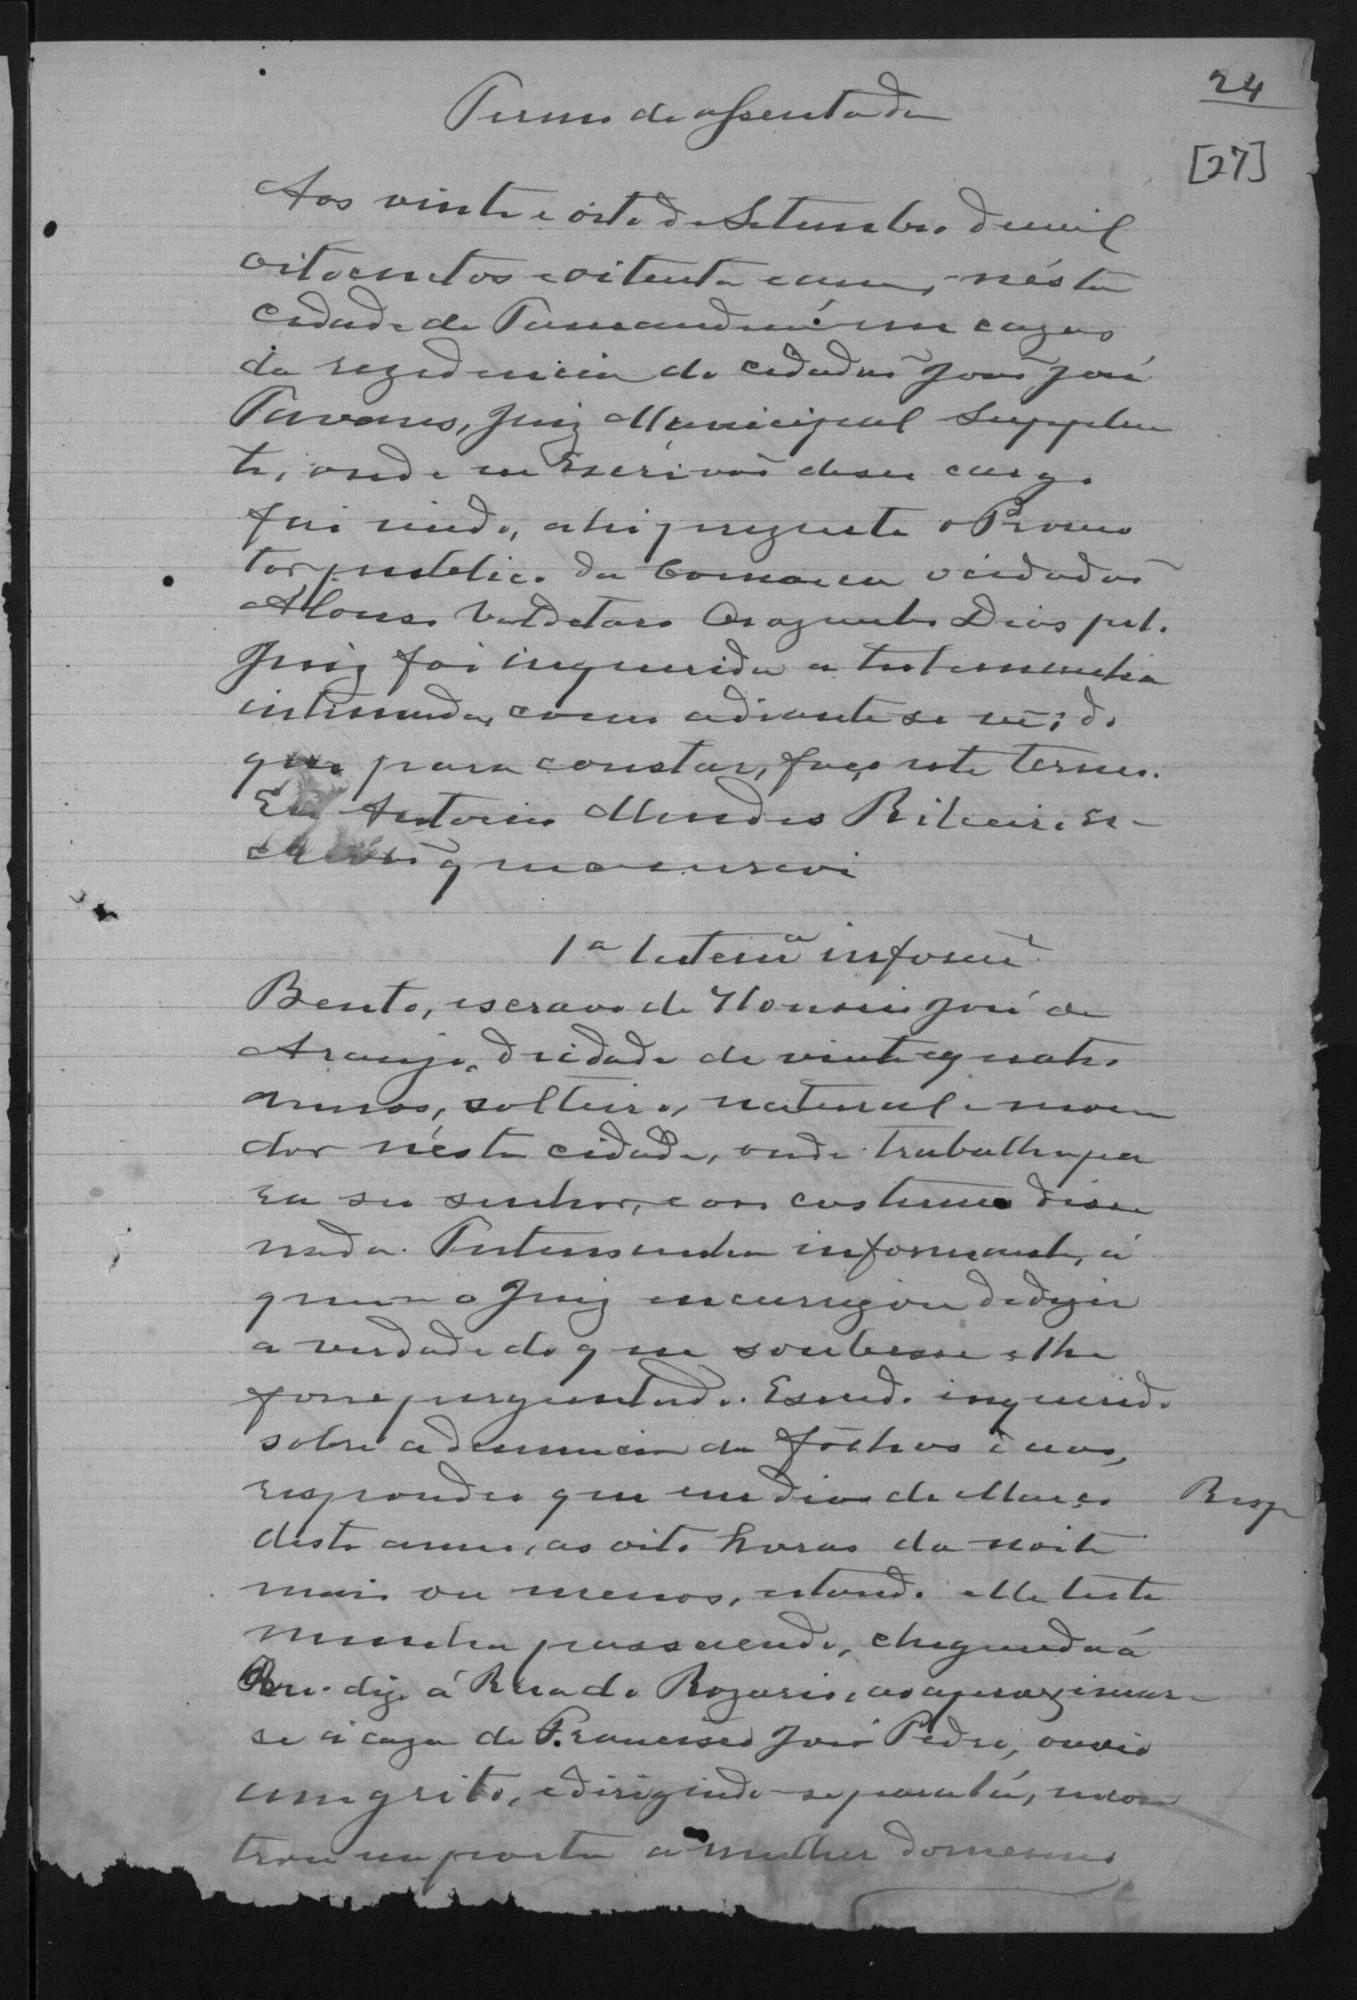 24
[27]
Termo de assentada
Aos vinte e oito de Setembro de mil
oitocentos e oitenta e um, nésta
cidade de Tamanduá em cazas
da rezidencia do cidadão João José
Tavares, Juiz Municipal Supplen
te, onde eu Escrivão de seu cargo
fui vindo, ahi prezente o Promo
tor publico da Comarca o cidadão
Affonso Dias pelo
Juiz foi inquerida a testemunha
intimada, como adiante se vê; do
que para constar, faço este termo.
Eu Antonio Mendes Ribeiro Es-
crivão q escrevi
1ª testemª informe
Bento, escravo de José de
Araujo, de idade de vinte e quatro
annos, solteiro, natural e mora
dor nésta cidade, onde trabalha pa
ra seu senhor, e aos custumes disse
nada. Testemunha informante, á
quem o Juiz encarregou de dizer
a verdade do que soubesse e lhe
fosse perguntado. E sendo inquerido
sobre a denuncia de folhas duas,
respondeo que em dias de Março
Resp
deste anno, as oito horas da noite
mais ou menos, estando elle teste
munha passeando, chegando á
Ru- digo á Rua do Rozario, ao aproximar-
se á caza de Francisco José Pedro, ouvio
um grito, e dirigindo-se para lá, encon
trou na porta a mulher do mesmo